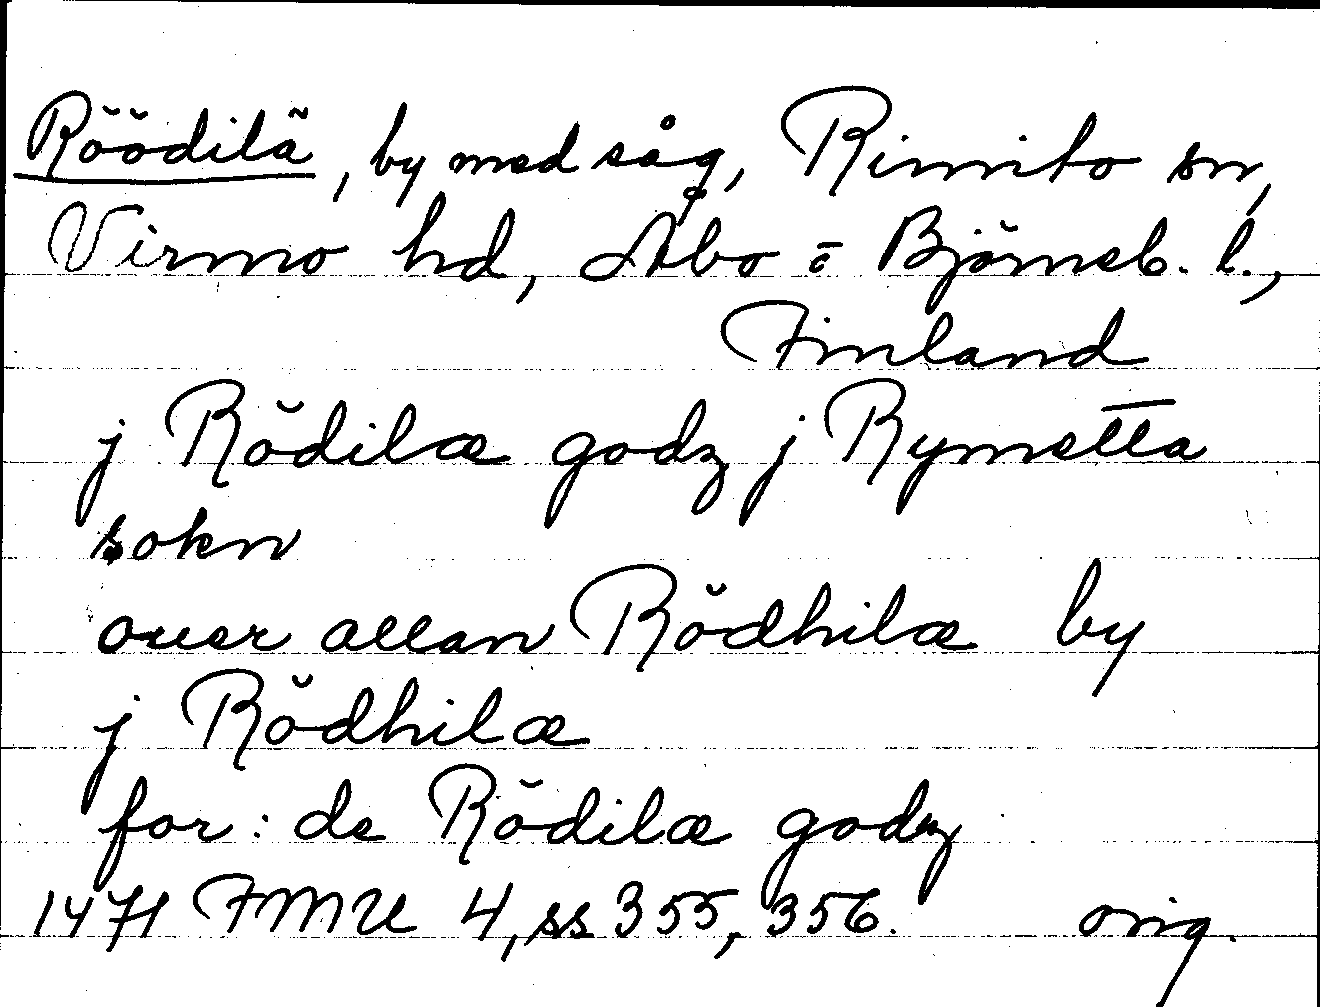 Röödilä, by med såg, Rimito sn,
Virmo hd, Åbo = Björneb. l.,
Finland
j Rödilæ godz j Rymetta
sokn
ouer allan Rödhilæ by
j Rödhilæ
for: de Rödilæ godz
1471 FMU 4, ss 355, 356. orig.